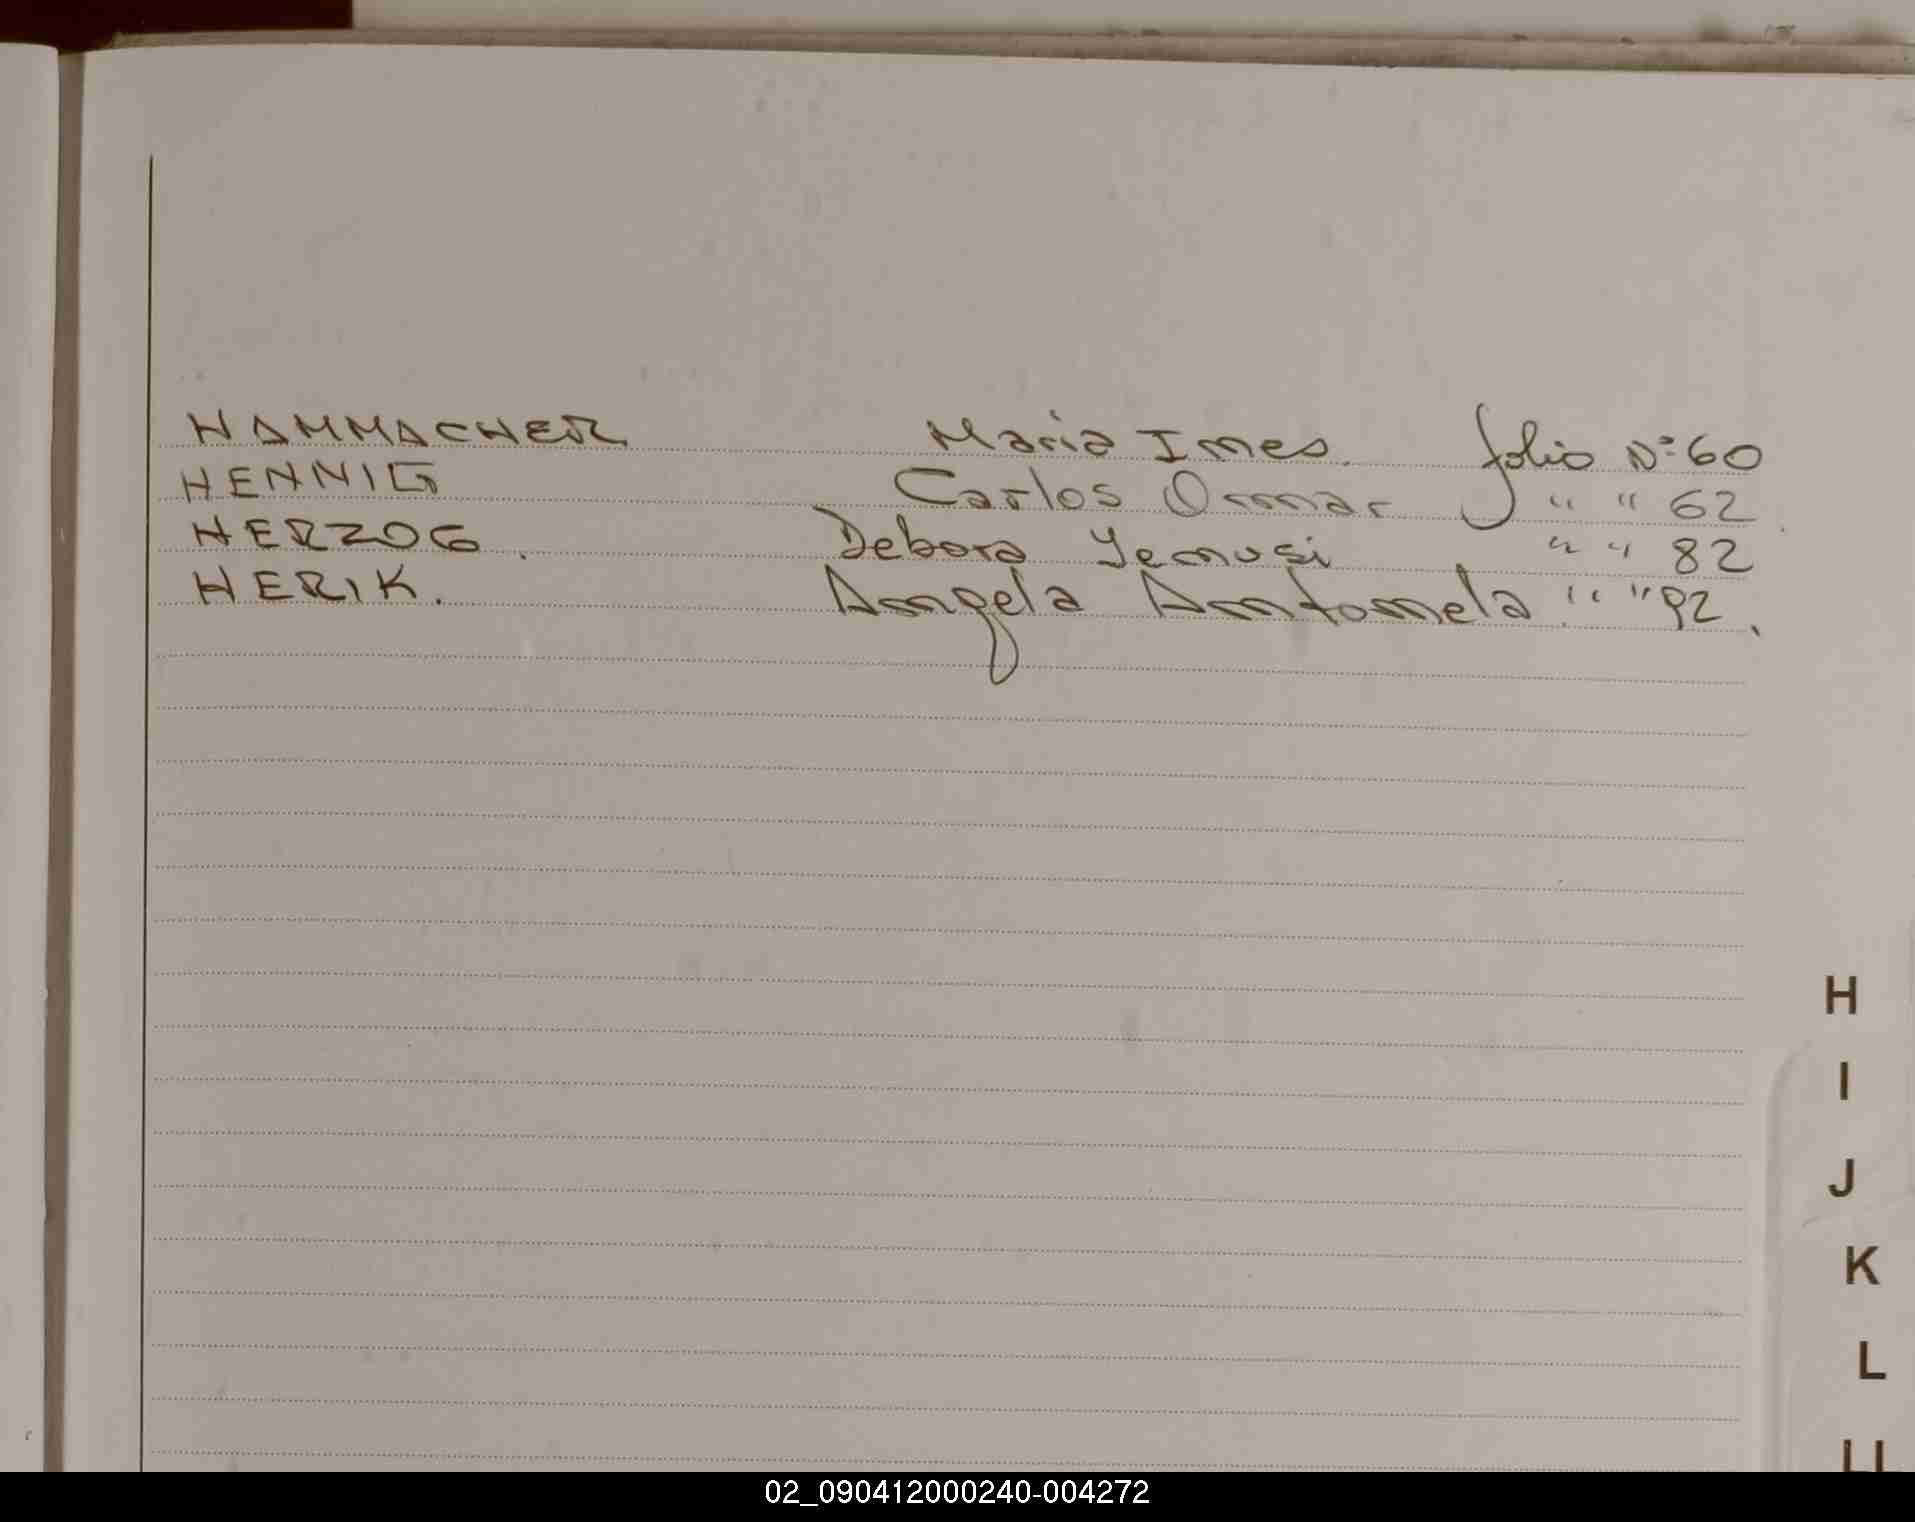 HAMMACHER Maria Ines. folio Nº 60
HENNIG Carlos Omar " " 62
HERZOG. Debora Yemusi " " 82
HERIK. Angela Antonela " " 92.
H
I
J
K
L
LL
02_090412000240-004272